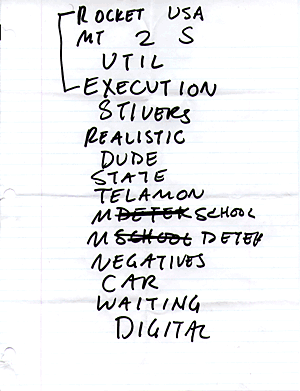 ROCKET USA
MT 2 S
UTIL
EXECUTION
STIVERS
REALISTIC
DUDE
STATE
TELAMON
M DETEK SCHOOL
M SCHOOL DETEK
NEGATIVES
CAR
WAITING
DIGITAL